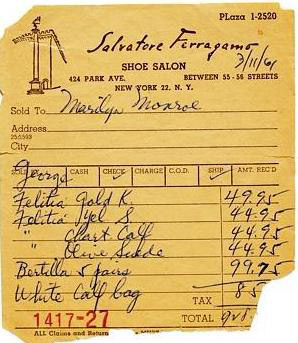 PLaza 1-2520
Salvatore Ferragamo
SHOE SALON
3/11/61
424 PARK AVE. BETWEEN 55-56 STREETS
NEW YORK 22, N. Y.
Sold To Marilyn Monroe
Address
City
George CASH CHECK CHARGE C.O.D. SHIP AMT. REC'D
Felitia Gold K. 49.95
Felitia Yel S 44.95
" Chart Calf 44.95
" Olive Suede 44.95
Bertilla 5 pairs 99.75
White Calf bag TAX 85
1417-27 TOTAL
ALL Claims and Return